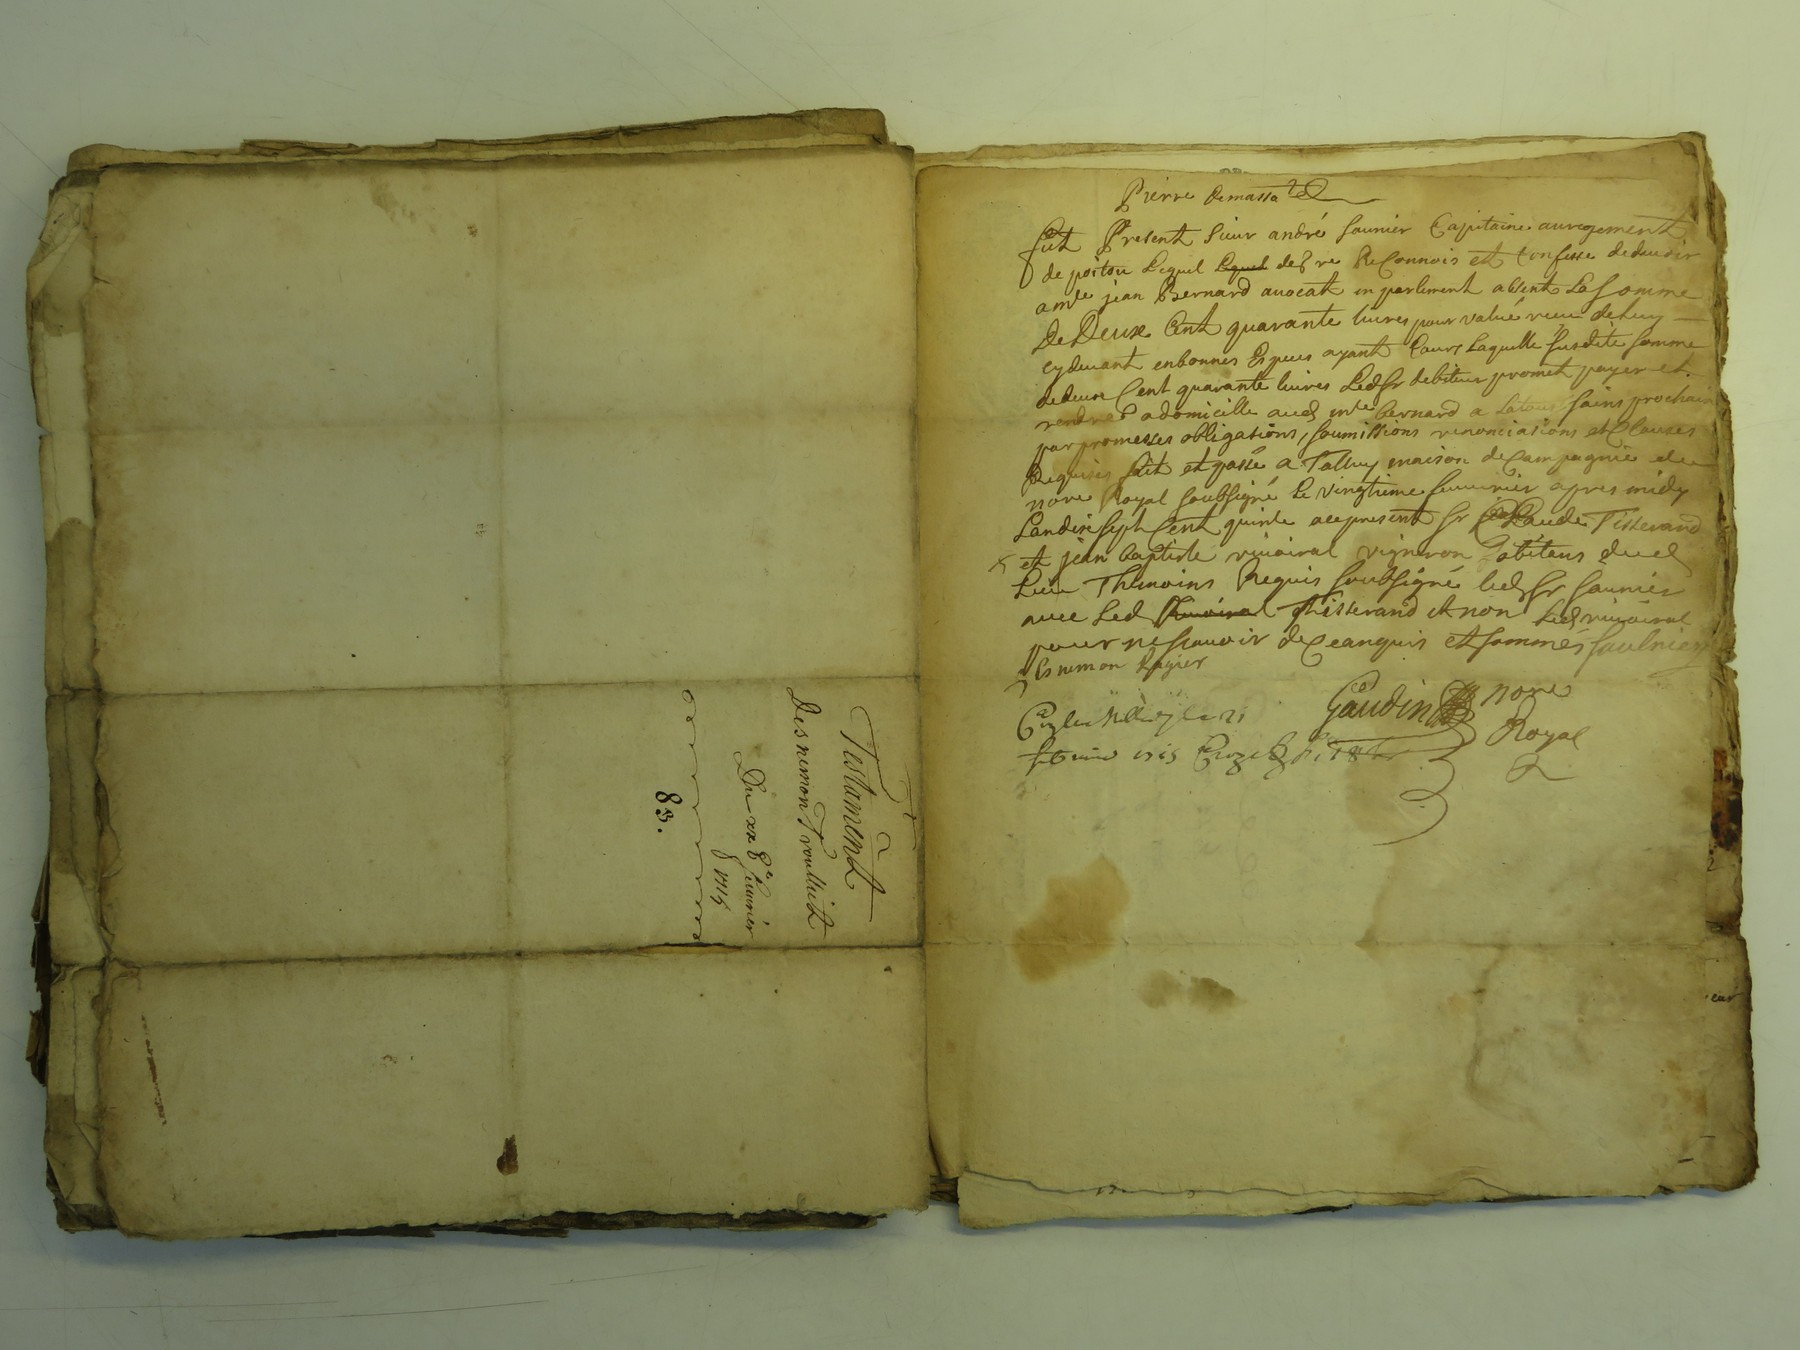 Testament
Desnemon Troulliet
Du xx 8e feuvrier
1715
83.
Pierre Demassa
fut Present Sieur andré saunier Capitaine auregement
de poitou Lequel Lequel de gre ReConnois et Confesse dedeuoir
a mte jean Bernard auocatt en parlement absent La Somme
De Deux Cent quarante liures pour valué receu de luy
cydeuant enbonnes Especes ayant Cours Laquelle susdite somme
dedeux Cent quarante liures Ledsr debiteur promet payer et
rendre a domicille aud mte bernard a Latous sains prochain
par promesses obligations, soumissions renonciations et Clauses
Requises fait et passé a Talluy maison de Campagnie de
nore Royal soubsigné Le vingtieme feuurier apres midy
Landix sept Cent quinze a ce present Sr Claude Tisserand
et jean baptiste viuairal vigneron habitans dud
Lieu Thémoins Requis soubsigné led sr saunier
auec Led Thisserand et non Led viuairal
pour ne scauoir de Ceanquis et sommés saulnier
Gaudin nore
Royal
feuurier 1715